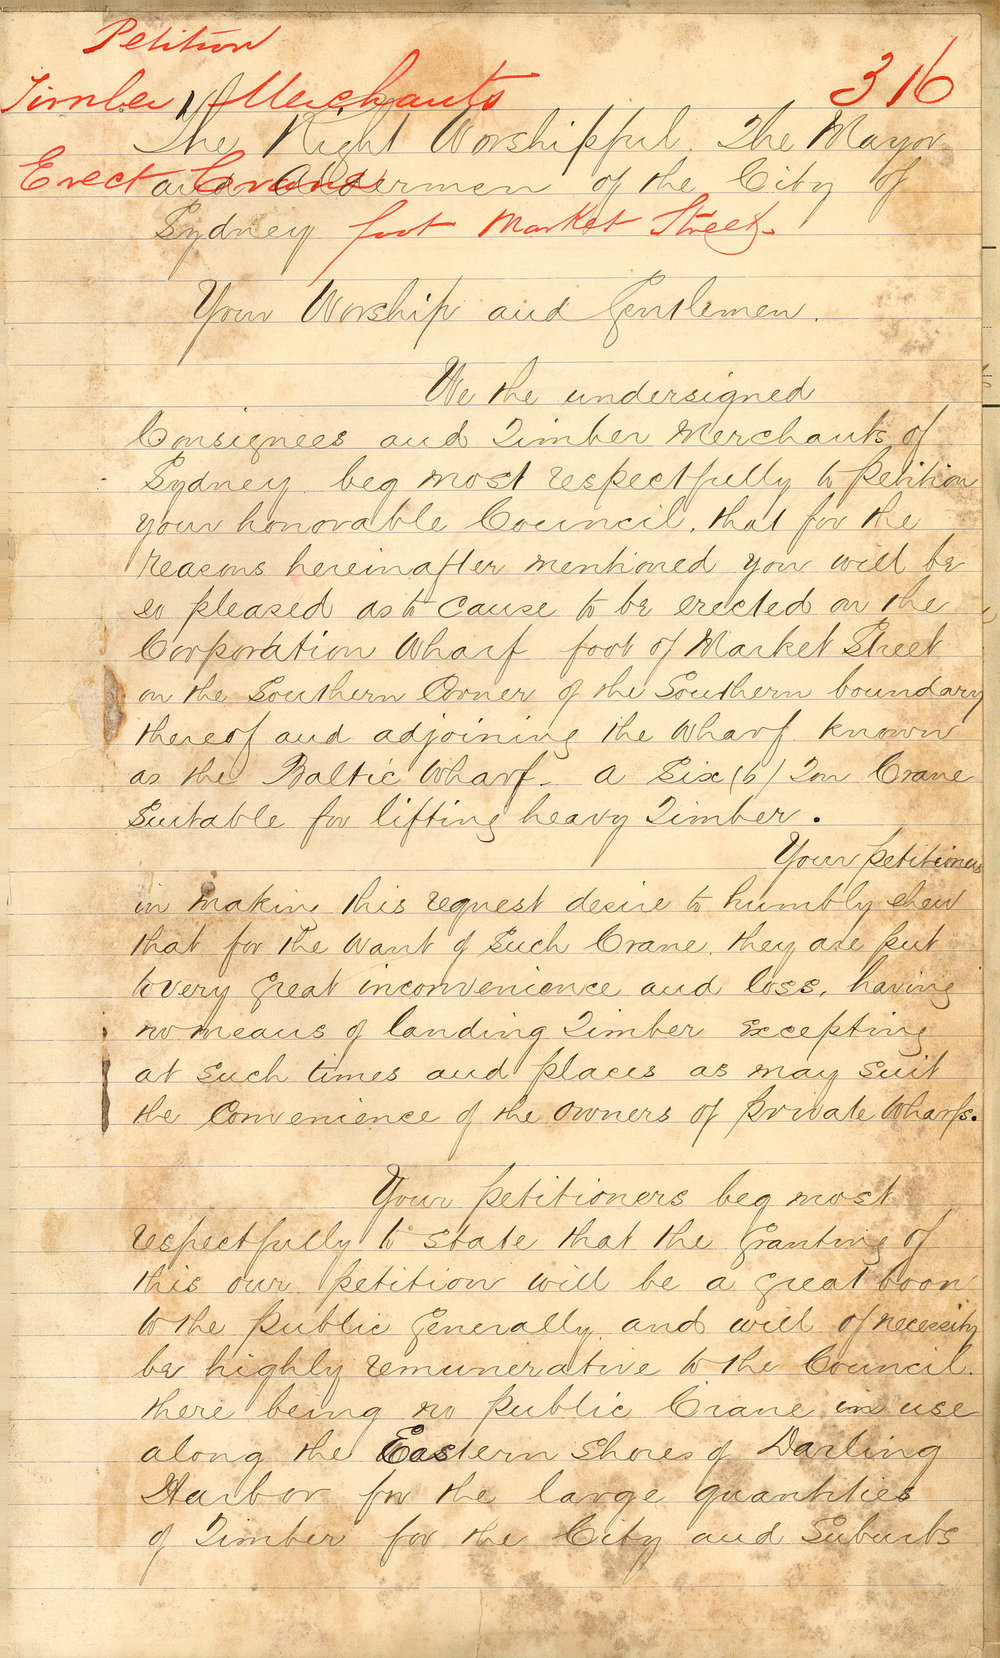 Petition
Timber Merchants
316
The Right Worshipful. The Mayor
Erect Crane
and Aldermen of the City of
Sydney
foot Market Street.
Your Worship and Gentlemen.
We the undersigned
Consignees and Timber Merchants of
Sydney beg most respectfully to petition
your honorable Council, that for the
reasons hereinafter mentioned you will be
so pleased as to cause to be erected on the
Corporation Wharf foot of Market Street
on the Southern Corner of the Southern boundary
thereof and adjoining the Wharf known
as the Baltic Wharf - a Six (6) Ton Crane
Suitable for lifting heavy Timber.
Your petitioners
in making this request desire to humbly shew
that for the want of Such Crane they are put
to very great inconvenience and loss, having
no means of landing Timber Excepting
at Such times and places as may Suit
the Convenience of the Owners of private Wharfs.
Your petitioners beg most
respectfully to state that the granting of
this our petition will be a great boon
to the public generally and will of necessity
be highly remunerative to the Council.
there being no public Crane in use
along the Eastern Shores of Darling
Harbor for the large quantities
of Timber for the City and Suburbs